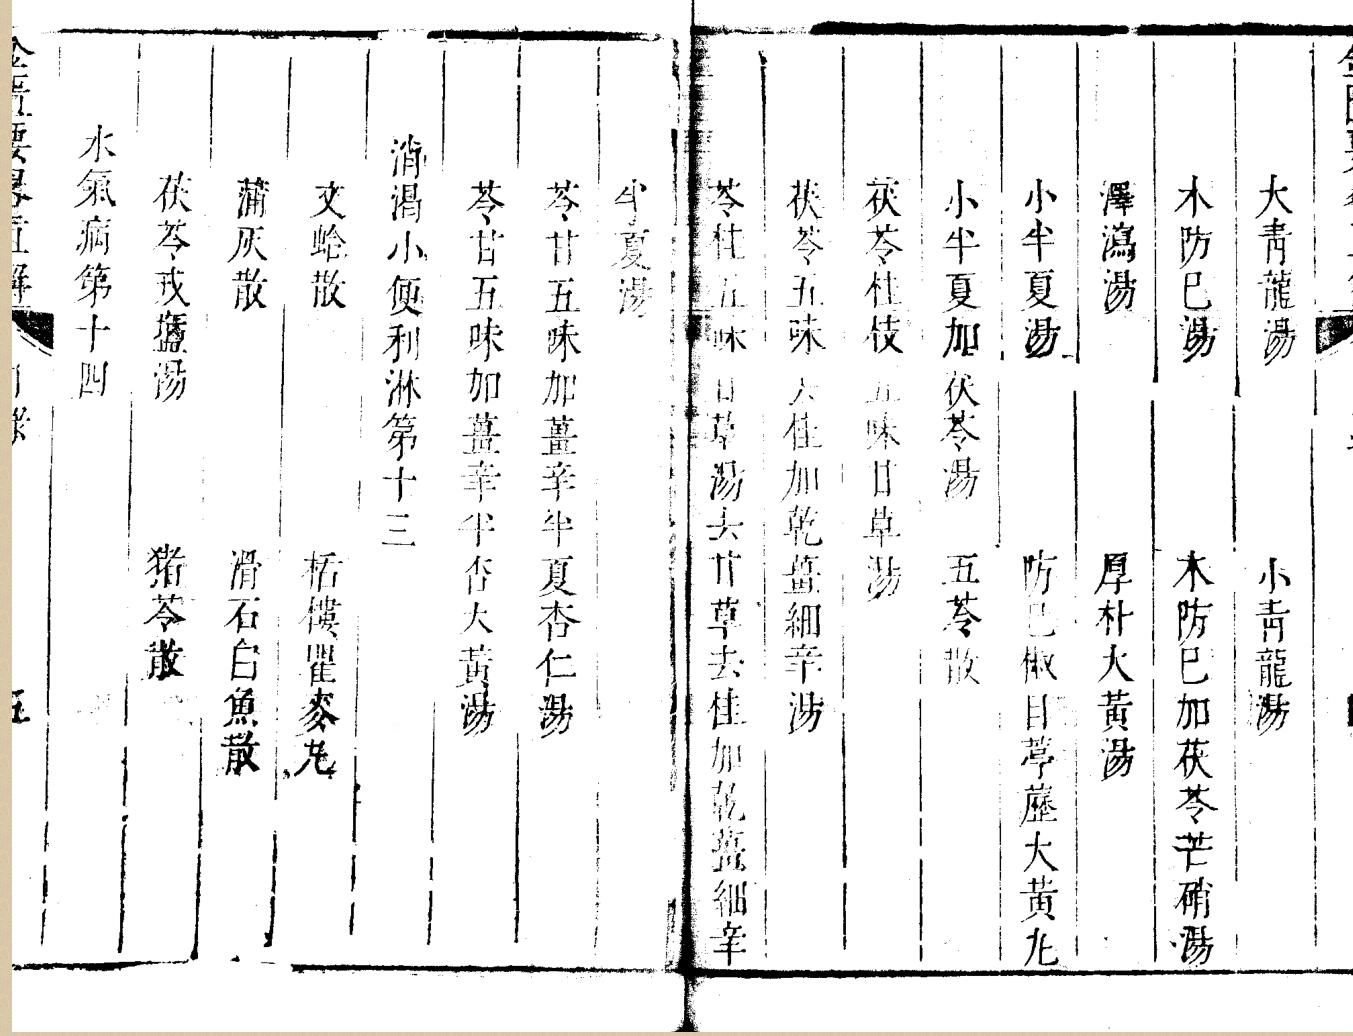 大青龍湯　小青龍湯
木防巳湯　木防巳加茯苓芒硝湯
澤瀉湯　厚朴大黃湯
小半夏湯　防巳椒目葶藶大黃丸
小半夏加茯苓湯　五苓散
茯苓桂枝五味甘草湯
茯苓五味去桂加乾薑細辛湯
苓桂五味甘草湯去甘草去桂加乾薑細辛
半夏湯
苓甘五味加薑辛半夏杏仁湯
苓甘五味加薑辛半杏大黃湯
消渴小便利淋第十三
文蛤散　栝樓瞿麥丸
蒲灰散　滑石白魚散
茯苓戎鹽湯　猪苓散
水氣病第十四
金匱要畧直解　目錄　五